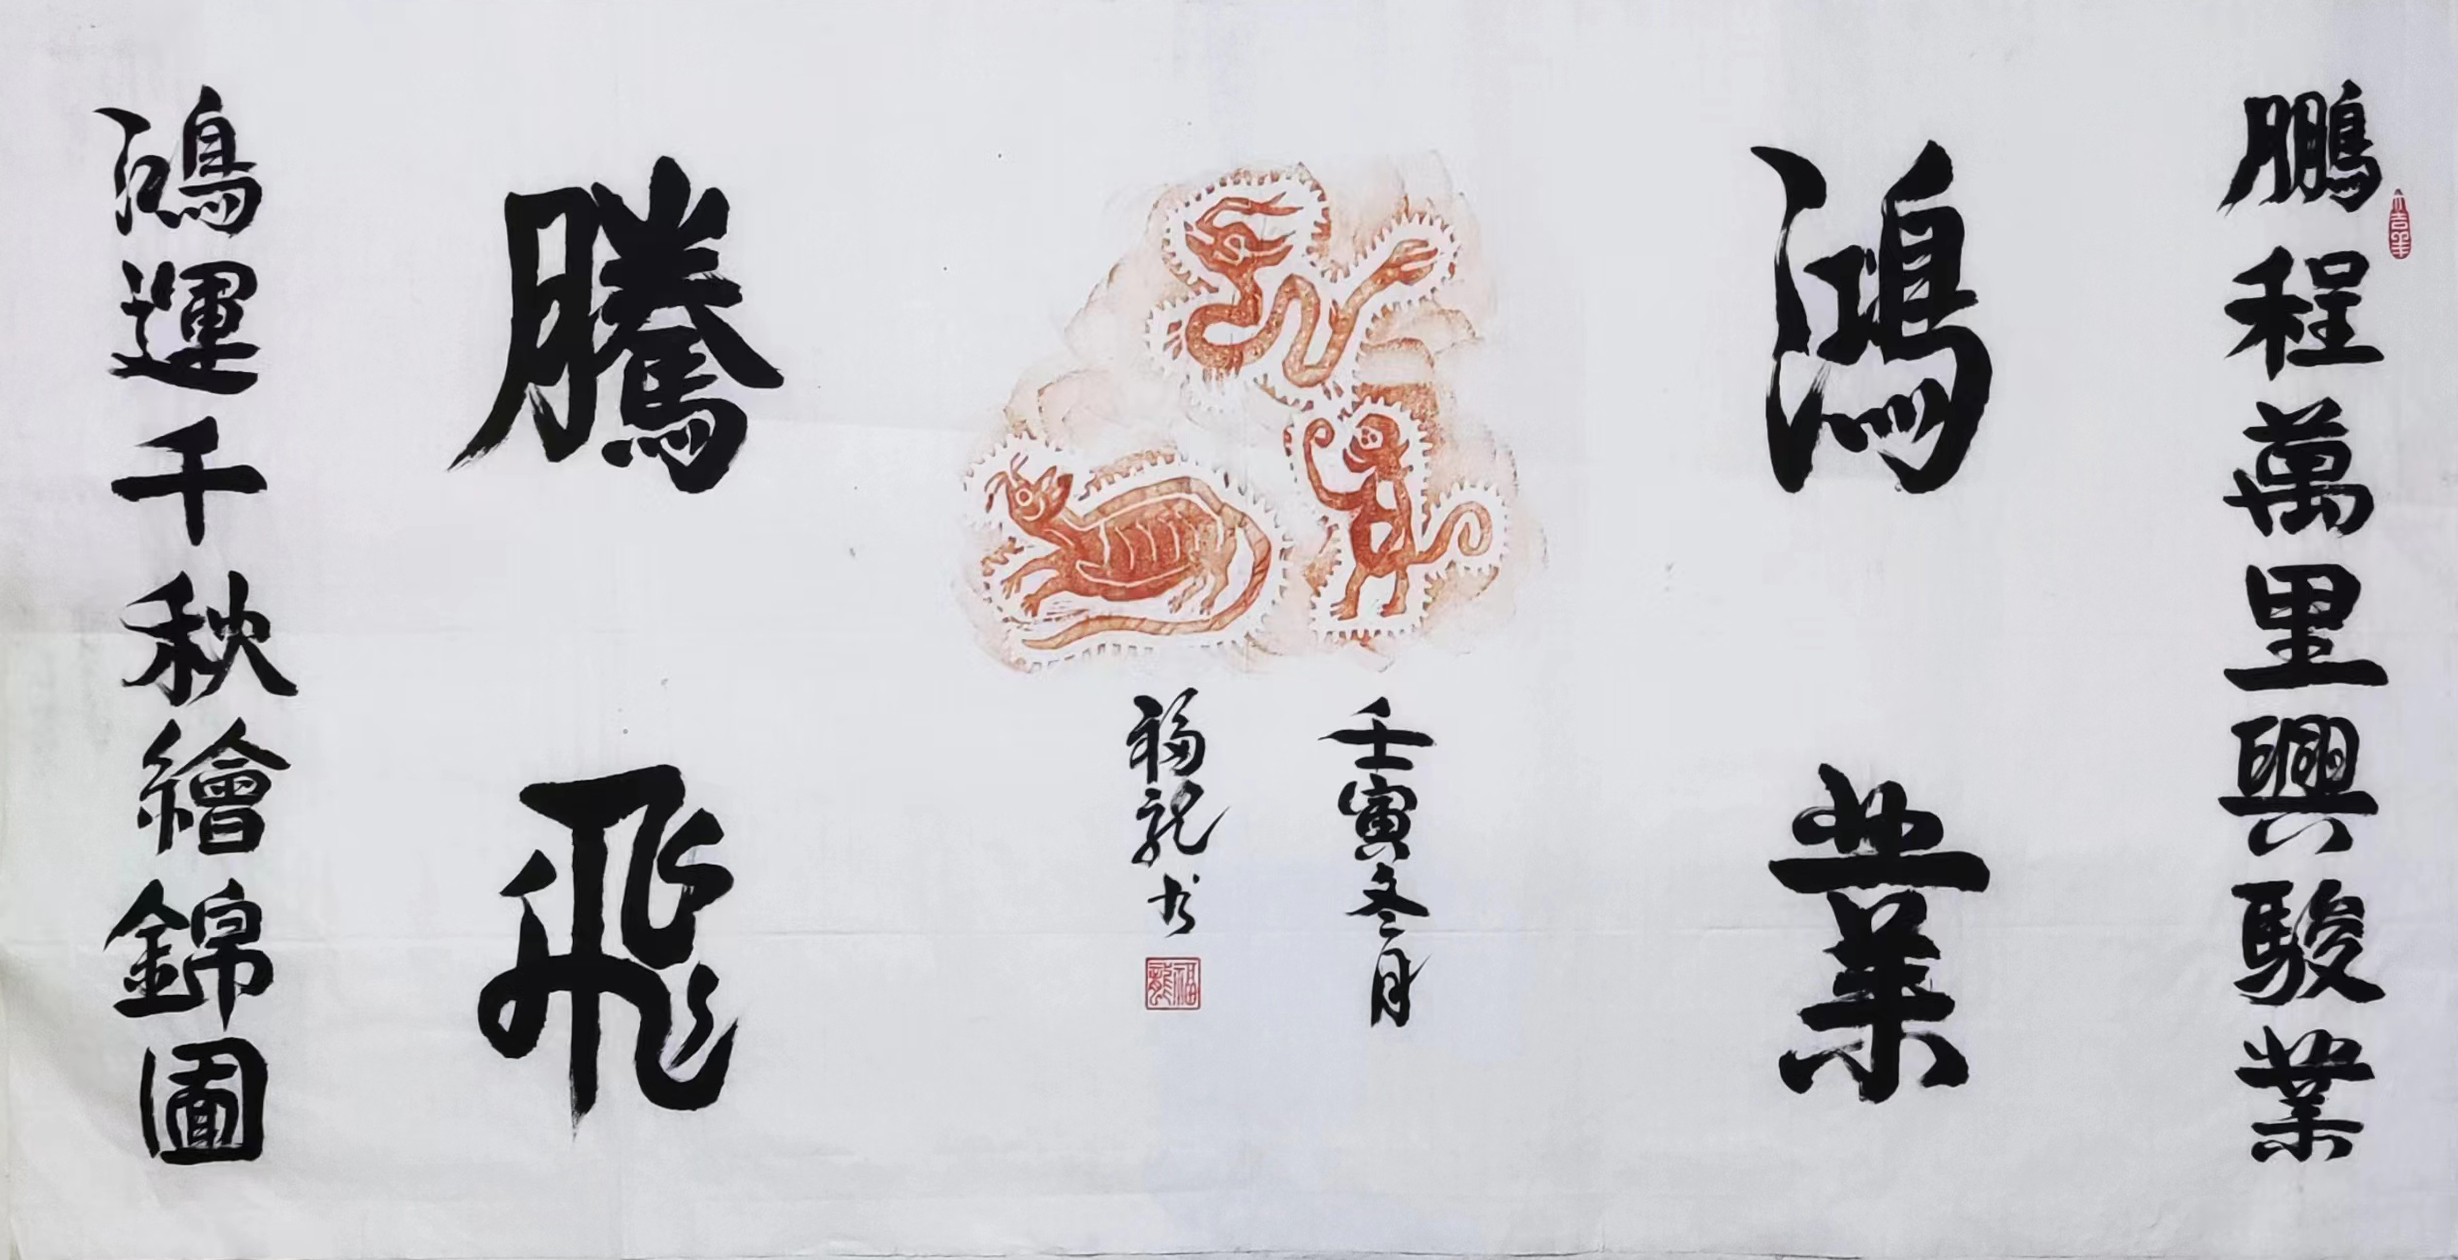 鵬程萬里興駿業
鴻業
騰飛
壬寅冬月
福龍书
福龍
鴻運千秋繪錦圖